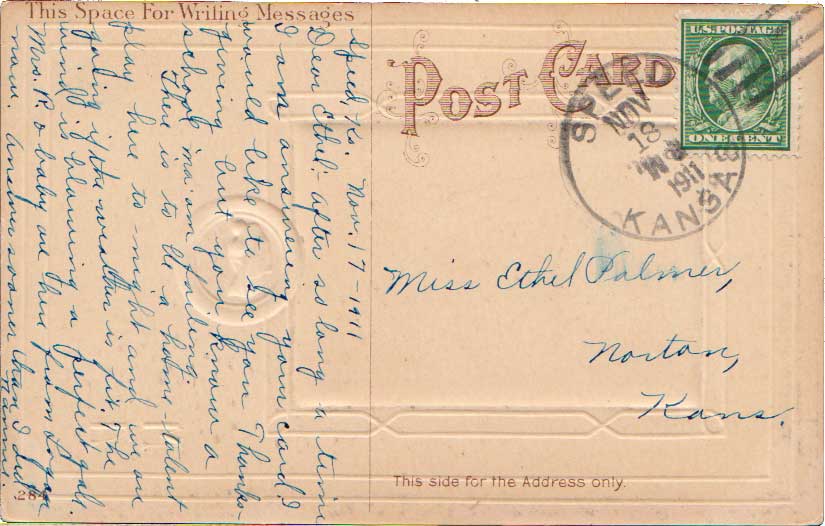 This Space For Writing Messages
Speed, Ks. Nov. 17-1911
Dear Ethel:- After so long a time
I am answering your card. I
would like to see you Thanks-
giving but you know a
school ma'am failing.
There is to be a home-talent
play here to-night and we are
going if the weather is fit. The
wind is blowing a perfect gale.
Mrs. P. & baby are here from Logan
now. Answer sooner than I did
Nannie.
284
POST CARD
U.S. POSTAGE
ONE CENT
SPEED
NOV
18
1911
KANSAS
Miss Ethel Palmer,
Norton,
Kans.
This side for the Address only.